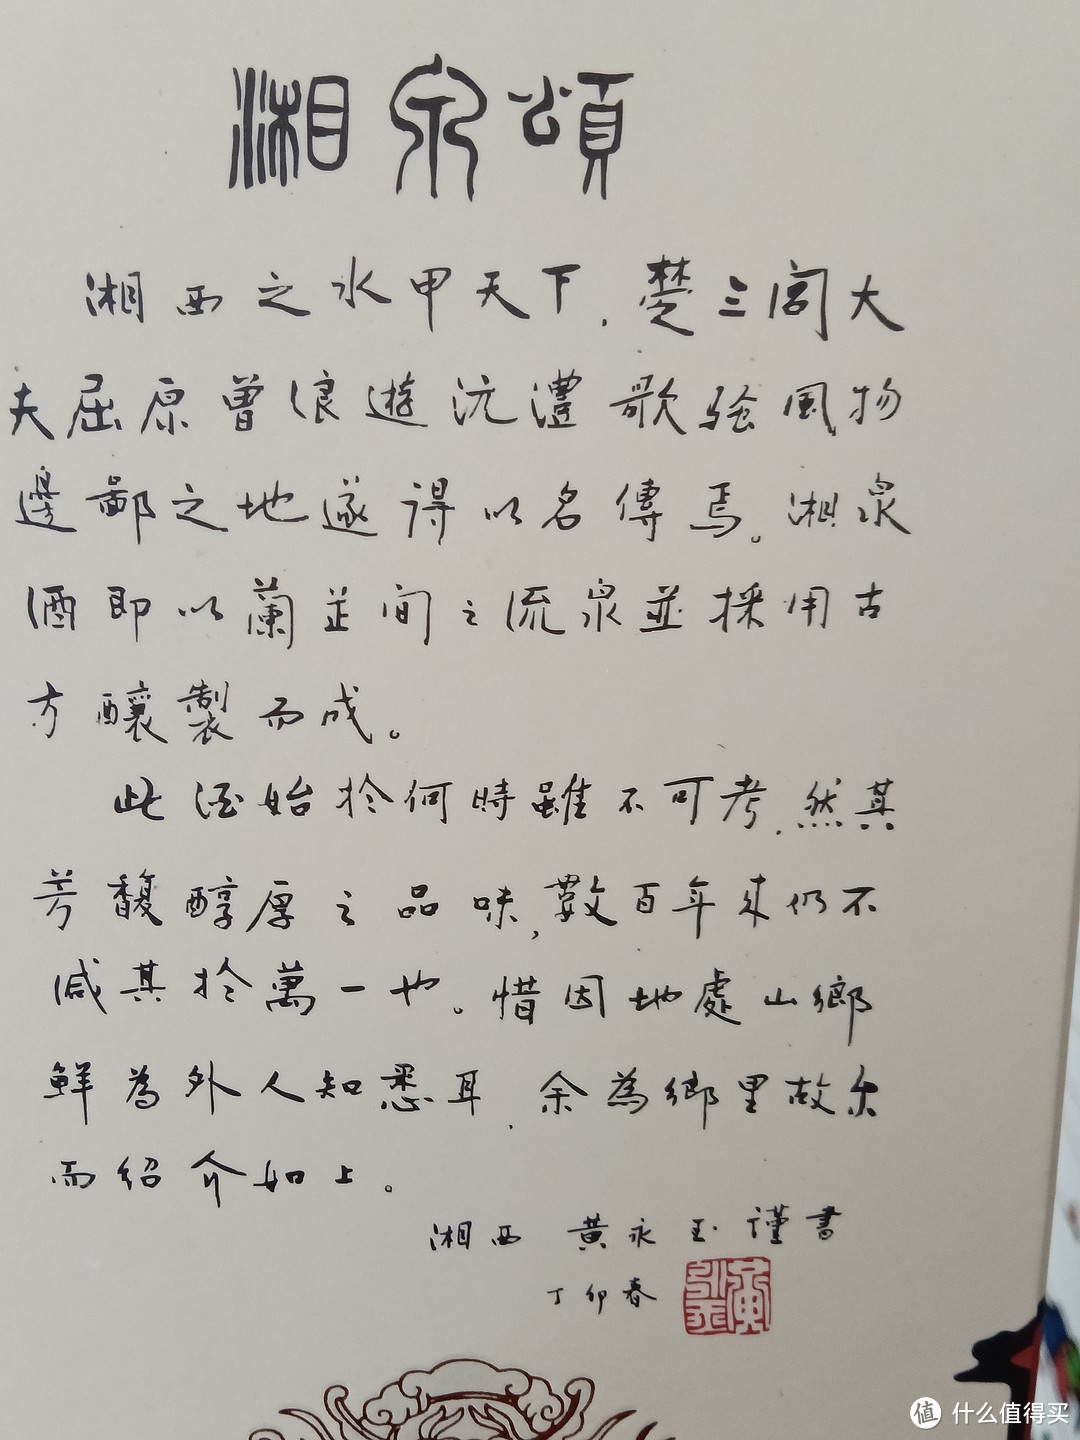 湘泉頌
湘西之水甲天下，楚三閭大
夫屈原曾浪遊沅澧歌騷風物
邊鄙之地遂得以名傳焉。湘泉
酒即以蘭芷間之流泉並採用古
方釀製而成。
此酒始於何時雖不可考，然其
芳馥醇厚之品味，數百年來仍不
減其於萬一也。惜因地處山鄉
鮮為外人知悉耳，余為鄉里故樂
而紹介如上。
湘西 黄永玉謹書
丁卯春
值 什么值得买